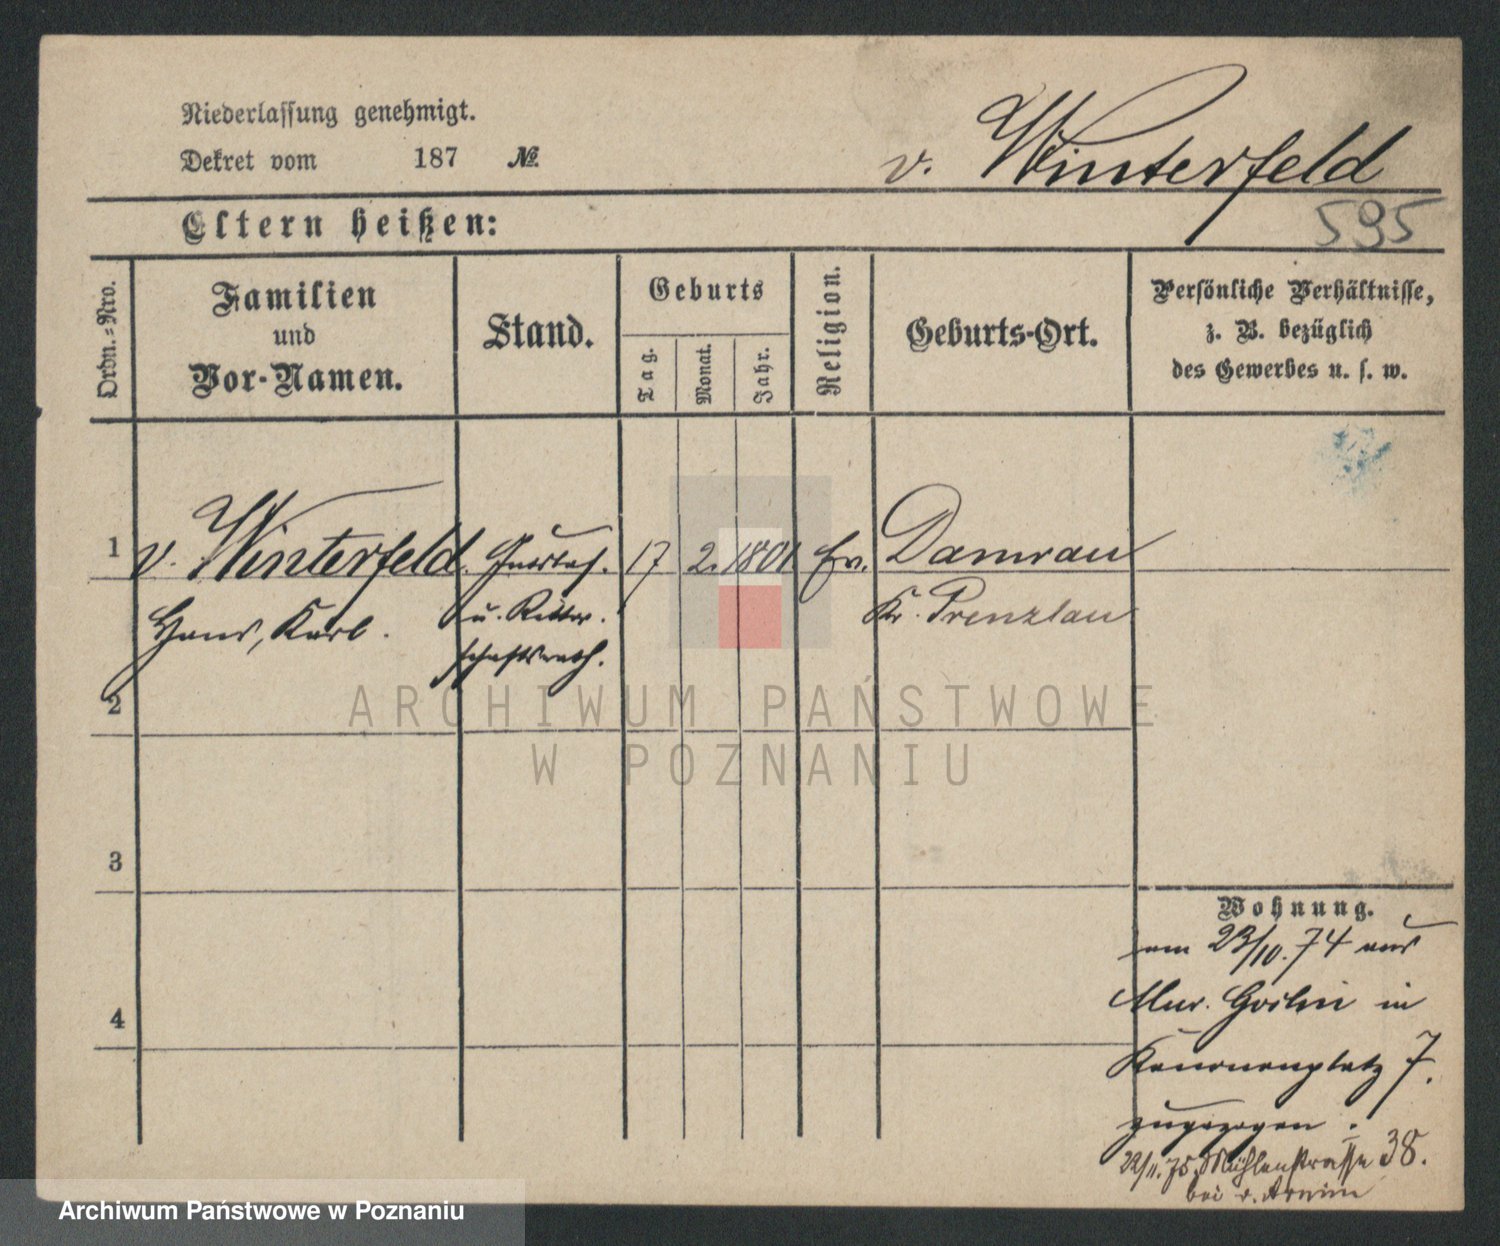 Niederlassung genehmigt.
Dekret vom 187 №
v. Winterfeld
595
Eltern heißen:
Ordn.-Nro.
Familien
und
Vor-Namen.
Stand.
Geburts
Tag.
Monat.
Jahr.
Religion.
Geburts-Ort.
Persönliche Verhältnisse,
z. B. bezüglich
des Gewerbes u. s. w.
1 v. Winterfeld Gutsbes. 17 2. 1801 Ev. Damrau
Hans, Karl. u. Ritter. Kr. Prenzlau
schaftsrath.
2
ARCHIWUM PAŃSTWOWE
W POZNANIU
3
4
Wohnung.
am 23/10. 74 aus
Mur. Goslin in
Kanonenplatz 7.
zugezogen.
22/11. 75. Mühlenstrasse 38.
bei v. Arnim
Archiwum Państwowe w Poznaniu